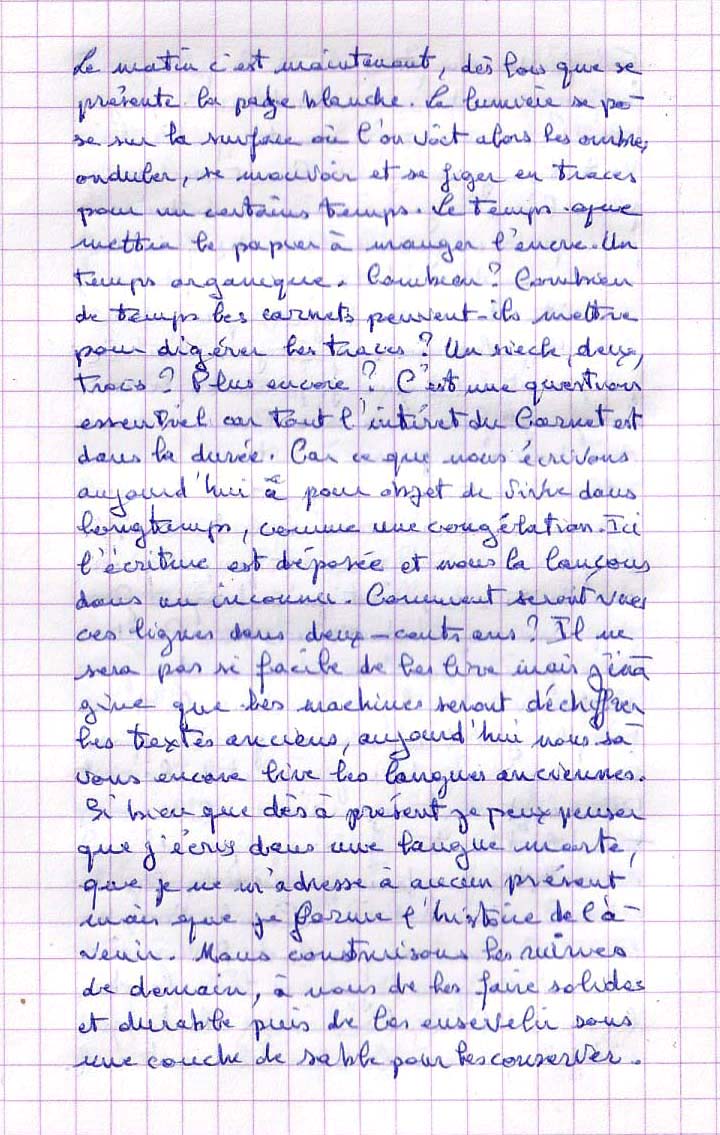 Le matin c'est maintenant, dès lors que se
présente la page blanche. La lumière se po-
se sur la surface où l'on voit alors les ombres
onduler, se mouvoir et se figer en traces
pour un certains temps. Le temps que
mettra le papier à manger l'encre. Un
temps organique. Combien? Combien
de temps les carnets peuvent-ils mettre
pour digérer les traces? Un siècle, deux,
trois? Plus encore? C'est une question
essentiel car tout l'intéret du Carnet est
dans la durée. Car ce que nous écrivons
aujourd'hui a pour objet de vivre dans
longtemps, comme une congélation. Ici
l'écriture est déposée et nous la lançons
dans un inconnu. Comment seront vues
ces lignes dans deux-cents ans? Il ne
sera pas si facile de les lire mais j'ima
gine que les machines seront déchiffrer
les textes anciens, aujourd'hui nous sa
vons encore lire les langues anciennes.
Si bien que dès à présent je peux penser
que j'écris dans une langue morte,
que je ne m'adresse à aucun présent
mais que je forme l'histoire de l'à-
venir. Nous construisons les ruines
de demain, à nous de les faire solides
et durable puis de les ensevelir sous
une couche de sable pour les conserver.